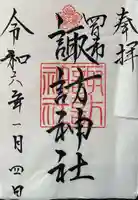 奉拝
四日市
諏訪神社
令和六年一月四日